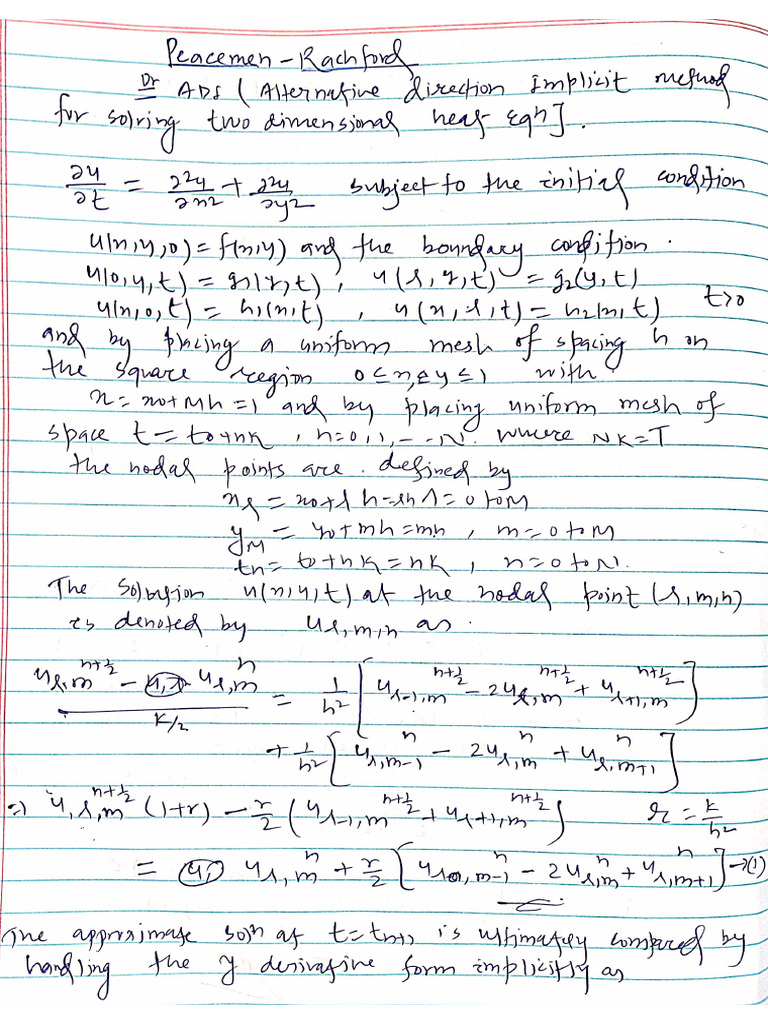 Peacemen – Rachford
Or ADI ( Alternative direction Implicit method
for solving two dimensional heat Eqn].
∂u/∂t = ∂²u/∂x² + ∂²u/∂y² subject to the initial condition
u(x,y,0) = f(x,y) and the boundary condition.
u(0,y,t) = g₁(y,t), u(1,y,t) = g₂(y,t)
u(x,0,t) = h₁(x,t), u(x,1,t) = h₂(x,t) t>0
and by placing a uniform mesh of spacing h on
the square region 0 ≤ x, y ≤ 1 with
x = x0 + Mh = 1 and by placing uniform mesh of
space t = t0 + nk, n=0,1,--N. where NK=T
the nodal points are. defined by
xl = x0 + l h = lh l = 0 to M
yM = y0 + mh = mh, m = 0 to M
tn = t0 + nK = nK, n = 0 to N.
The Solution u(x,y,t) at the nodal point (l,m,n)
is denoted by ul,m,n as.
(ul,m^(n+1/2) – ul,m^n) / (K/2) = 1/h² [ul-1,m^(n+1/2) – 2ul,m^(n+1/2) + ul+1,m^(n+1/2)]
+ 1/h² [ul,m-1^n – 2ul,m^n + ul,m+1^n]
=> ul,m^(n+1/2) (1+r) – r/2 (ul-1,m^(n+1/2) + ul+1,m^(n+1/2)) r = k/h²
= ul,m^n + r/2 [ul,m-1^n – 2ul,m^n + ul,m+1^n] →(1)
The approximate soln at t = tn+1 is ultimately compared by
handling the y derivative form implicitly as